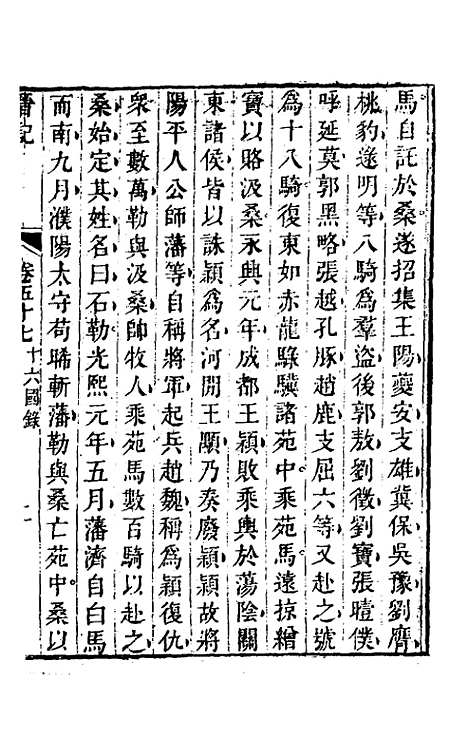 馬自託於桑遂招集王陽夔安支雄冀保吳豫劉膺
桃豹逯明等八騎爲羣盜後郭敖劉徵劉寶張曀僕
呼延莫郭黑略張越孔豚趙鹿支屈六等又赴之號
爲十八騎復東如赤龍騄驥諸苑中乘苑馬遠掠繒
寶以賂汲桑永興元年成都王穎敗乘輿於蕩陰關
東諸侯皆以誅穎爲名河閒王顒乃奏廢穎穎故將
陽平人公師藩等自稱將軍起兵趙魏稱爲穎復仇
衆至數萬勒與汲桑帥牧人乘苑馬數百騎以赴之
桑始定其姓名曰石勒光熙元年五月藩濟自白馬
而南九月濮陽太守苟晞斬藩勒與桑亡苑中桑以
晉記
卷五十七 十六國錄